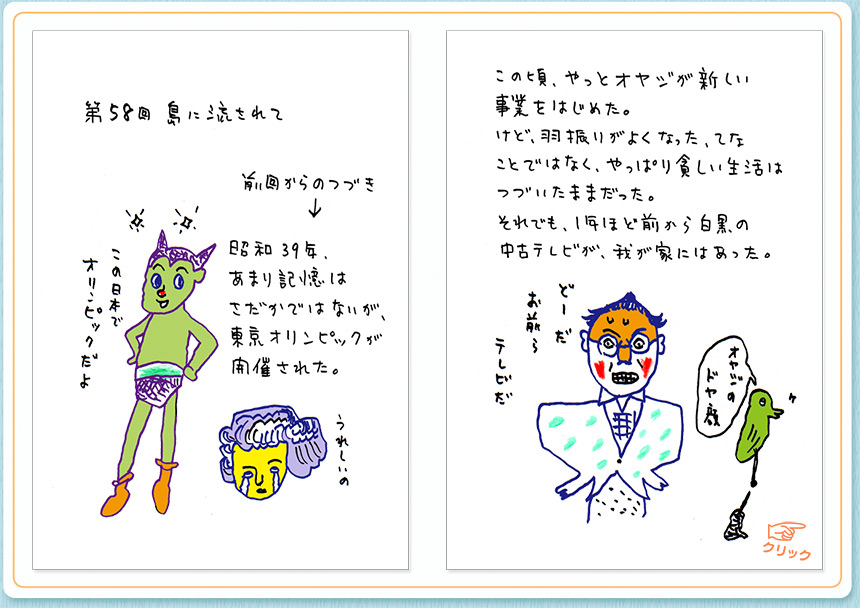 第58回 島に流されて
前回からのつづき
↓
昭和39年、
あまり記憶は
さだかではないが、
東京オリンピックが
開催された。
この日本で
オリンピックだよ
うれしいの
この頃、やっとオヤジが新しい
事業をはじめた。
けど、羽振りがよくなった、てな
ことではなく、やっぱり貧しい生活は
つづいたままだった。
それでも、1年ほど前から白黒の
中古テレビが、我が家にはあった。
どーだ
お前ら
テレビだ
オヤジの
ドヤ顔
クリック